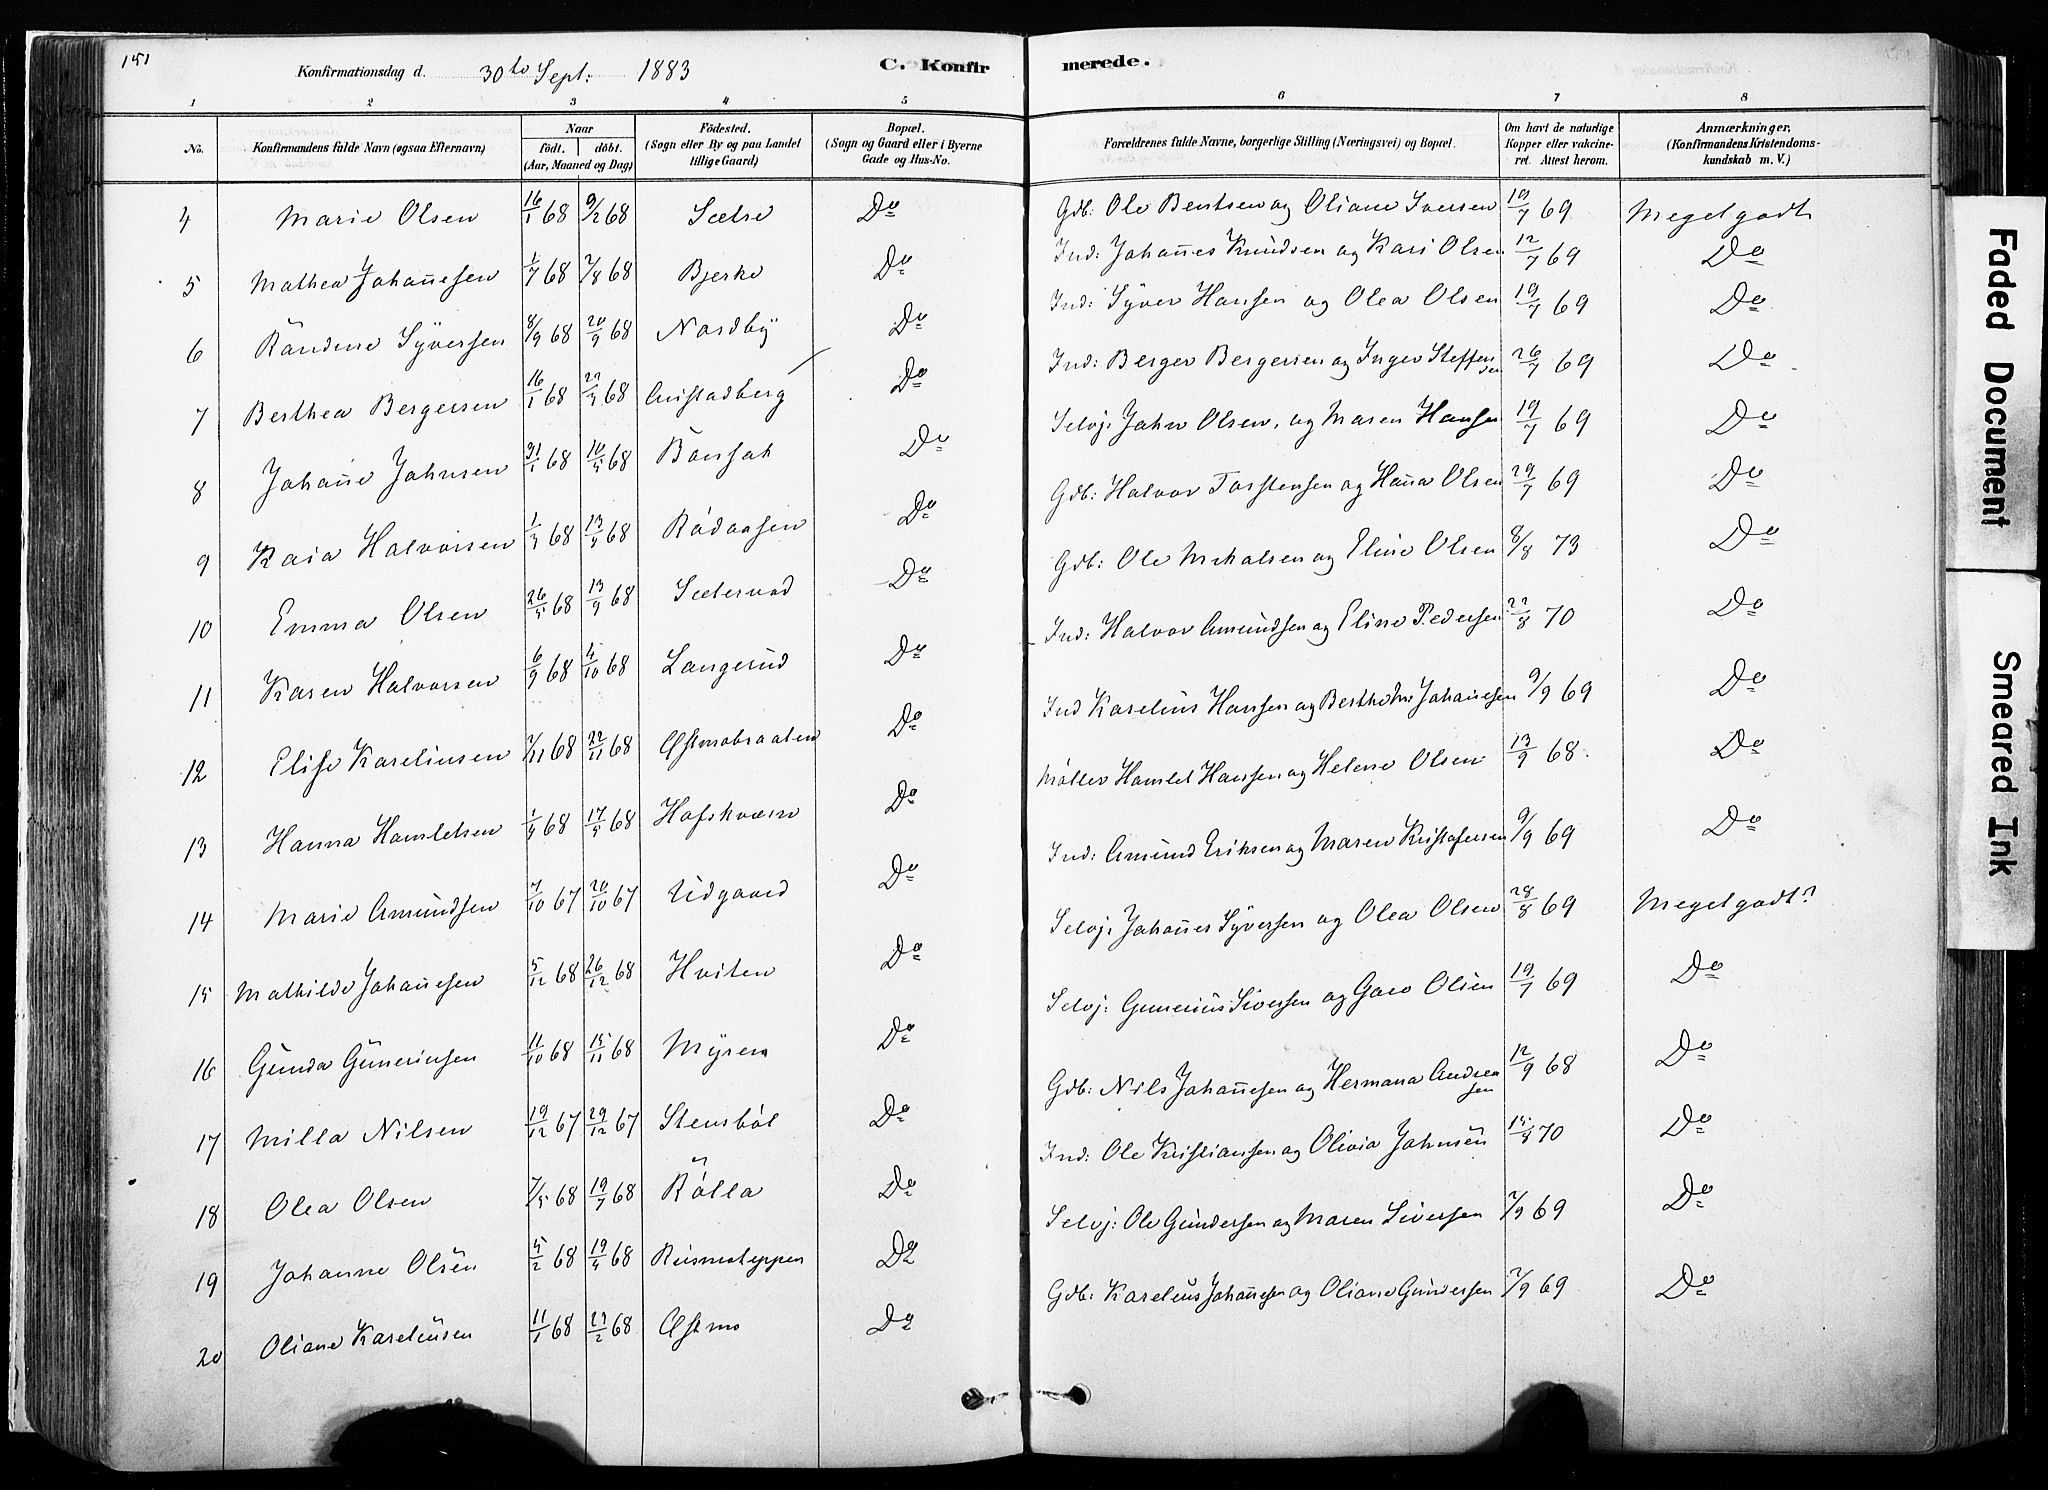 151
Konfirmationsdag d. 30te Sept: 1883
C. Konfirmerede.
1 2 3 4 5 6 7 8
No.
Konfirmandens fulde Navn (ogsaa Efternavn)
Naar
födt. döbt.
(Aar, Maaned og Dag)
Födested.
(Sogn eller By og paa Landet
tillige Gaard)
Bopæl.
(Sogn og Gaard eller i Byerne
Gade og Hus-No.
Forældrenes fulde Navne, borgerlige Stilling (Næringsvei) og Bopæl.
Om havt de naturlige
Kopper eller vakcine-
ret. Attest herom.
Anmærkninger.
(Konfirmandens Kristendoms-
kundskab m. V.)
4 Marie Olsen 16/1 68 9/2 68 Sætre Do Gdb: Ole Bentsen og Oliane Iversen 19/7 69 Meget godt
5 Mathea Johañesen 1/7 68 2/8 68 Bjerke Do Ind: Johañes Knudsen og Kari Olsen 12/7 69 Do
6 Randine Syversen 8/9 68 20/9 68 Nordby Do Ind: Syver Hansen og Olea Olsen 19/7 69 Do
7 Berthea Bergersen 16/1 68 68 Do Ind: Berger Bergersen og Inger Steffensen 26/7 69 Do
8 Johañe Johnsen 31/1 68 10/5 68 Do Selvj. John Olsen, og Maren Hansen 19/7 69 Do
9 Kaia Halvorsen 1/3 68 13/4 68 Rödaasen Do Gdb: Halvor Torstensen og Haña Olsen 29/7 69 Do
10 Emma Olsen 26/5 68 13/9 68 Sæterved Do Gdb: Ole Mikalsen og Eline Olsen 8/8 73 Do
11 Karen Halvorsen 6/9 68 4/10 68 Langerud Do Ind: Halvor Amundsen og Eline Pedersen 22/8 70 Do
12 Elise Kareliusen 7/11 68 22/11 68 Østmobraaten Do Ind Karelius Hansen og Berthe Johañesen 9/9 69 Do
13 Hanna Hamletsen 1/4 68 17/5 68 Hofskværn Do Möller Hamlet Hansen og Helene Olsen 13/9 68. Do
14 Marie Amundsen 7/10 67 20/10 67 Udgaard Do Ind: Amund Eriksen og Maren Kristofersen 9/9 69 Do
15 Mathilde Johañesen 5/12 68 26/12 68 Hviten Do Selvj. Johañes Syversen og Olea Olsen 28/8 69 Meget godt?
16 Gunda Guneriusen 11/10 68 15/11 68 Myren Do Selvj: Gunerius Siversen og Goro Olsen 19/7 69 Do
17 Milla Nilsen 19/12 67 29/12 67 Stensböl Do Gdb: Nils Johañesen og Hermana Andreasen 12/9 68 Do
18 Olea Olsen 7/5 68 19/7 68 Rölla Do Ind: Ole Kristiansen og Olivia Johnsen 15/8 70 Do
19 Johanne Olsen 5/2 68 19/4 68 Do Selvj: Ole Gundersen og Maren Siversen 7/9 69 Do
20 Oliane Kareliusen 11/1 68 23/2 68 Østmo Do Gdb: Karelius Johañesen og Oliane Gundersen 7/9 69 Do
Faded Document
Smeared Ink